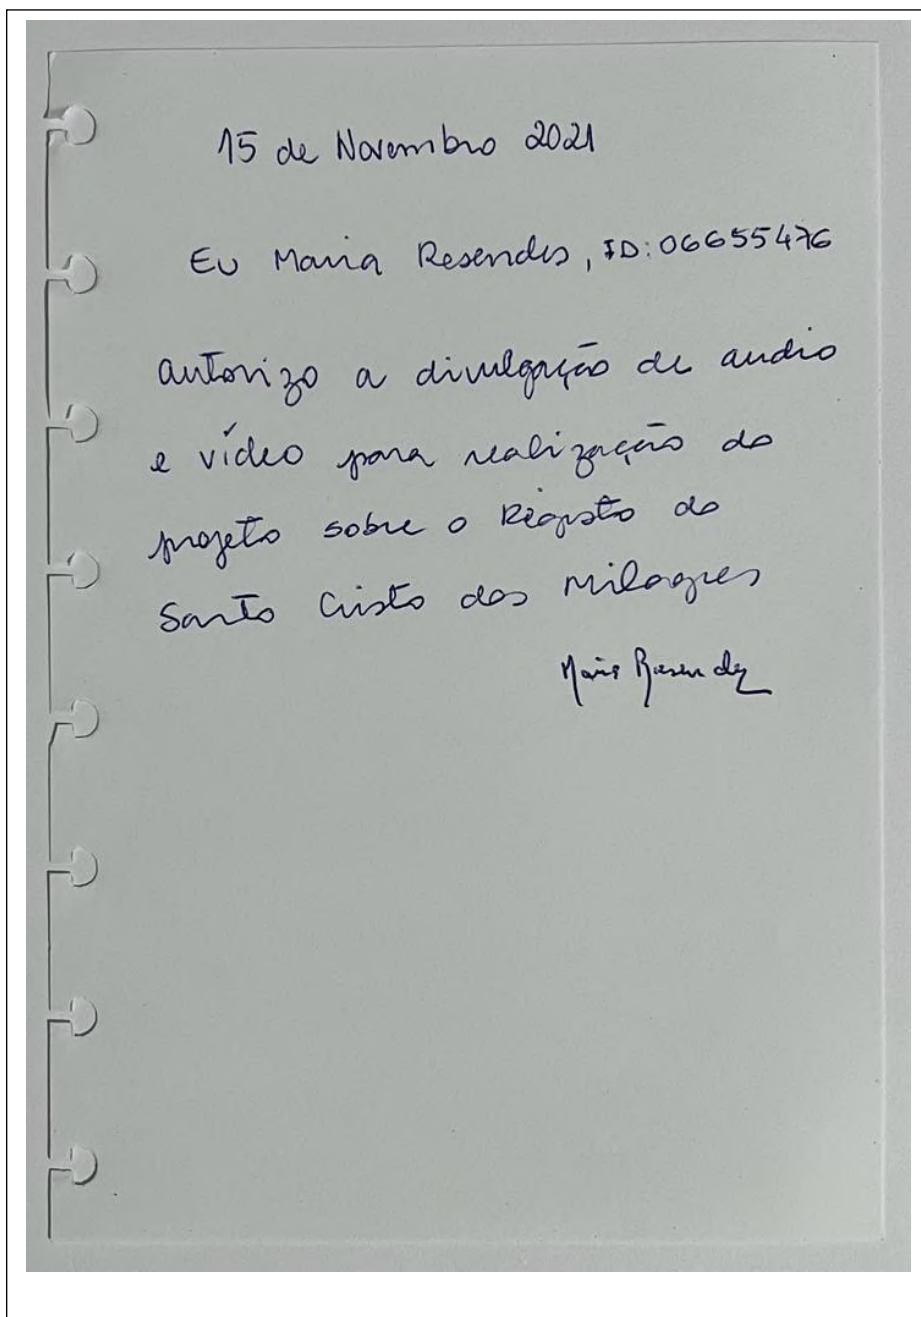 15 de Novembro 2021
Eu Maria Resendes, ID: 06655476
autorizo a divulgação de audio
e vídeo para realização do
projeto sobre o Registo do
Santo Cristo dos Milagres
Maria Resendes